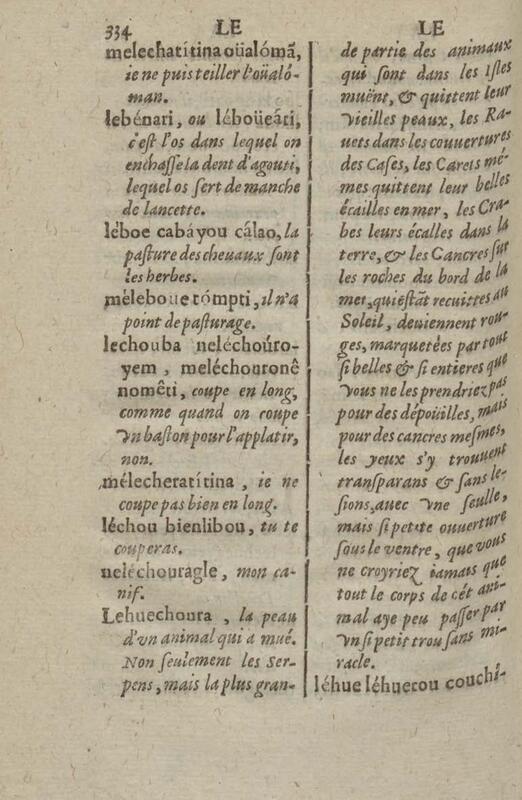 334 LE LE
melechatítina oüalómã,
ie ne puis teiller l'oüaló-
man.
lebénari, ou léboüeári,
c'est l'os dans lequel on
enchasse la dent d'agouti,
lequel os sert de manche
de lancette.
léboe cabáyou cálao, la
pasture des cheuaux sont
les herbes.
méleboue tómpti, il n'a
point de pasturage.
lechouba neléchoúro-
yem, meléchouronê
nomêti, coupe en long,
comme quand on coupe
vn baston pour l'applatir,
non.
mélecheratítina, ie ne
coupe pas bien en long.
léchou bienlibou, tu te
couperas.
neléchouragle, mon ca-
nif.
Lehuechoura, la peau
d'vn animal qui à mué.
Non seulement les Ser-
pens, mais la plus gran-
de partie des animaux
qui sont dans les Isles
muënt, & quittent leur
vieilles peaux, les Ra-
uets dans les couuertures
des Cases, les Carets mé-
mes quittent leur belles
écailles en mer, les Cra-
bes leurs écalles dans la
terre, & les Cancres sur
les roches du bord de la
mer, qui estãt recuittes au
Soleil, deuiennent rou-
ges, marquetées par tout
si belles & si entieres que
vous ne les prendriez pas
pour des dépoüilles, mais
pour des cancres mesmes,
les yeux s'y trouuent
transparans & sans le-
sions, auec vne seulle,
mais si petite ouuerture
sous le ventre, que vous
ne croyriez iamais que
tout le corps de cét ani-
mal aye peu passer par
vn si petit trou sans mi-
racle.
léhue léhuerou couchi-